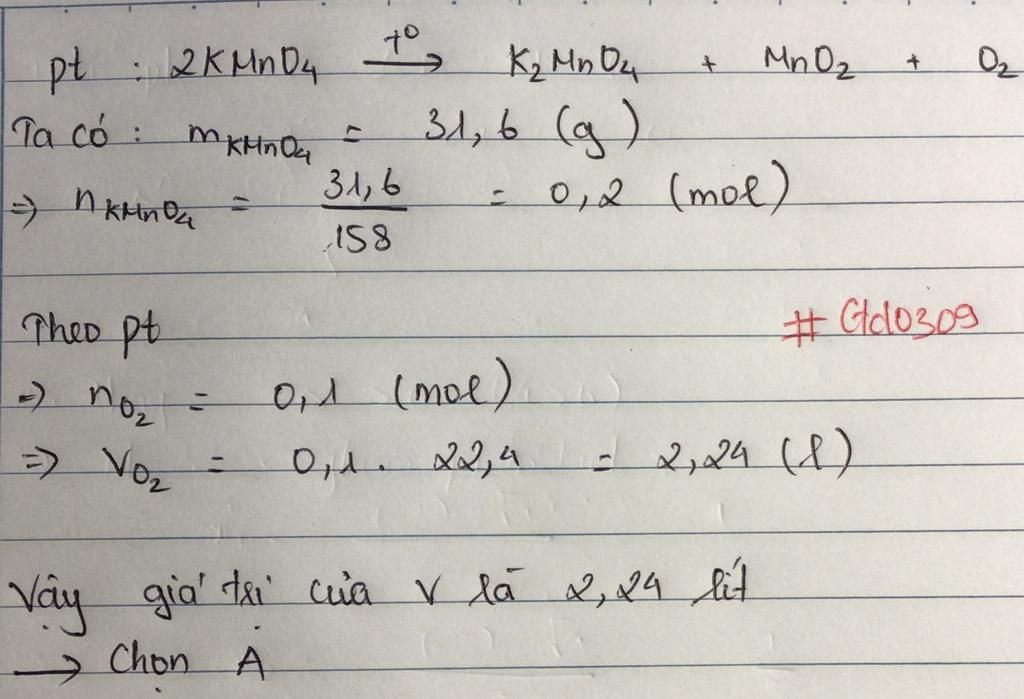 pt : 2KMnO₄ —t⁰→ K₂MnO₄ + MnO₂ + O₂
Ta có : m_KMnO₄ = 31,6 (g)
=> n_KMnO₄ = 31,6 / 158 = 0,2 (mol)
Theo pt
# Gtd0309
=> n_O₂ = 0,1 (mol)
=> V_O₂ = 0,1 . 22,4 = 2,24 (l)
Vậy giá trị của V là 2,24 lít
→ Chọn A